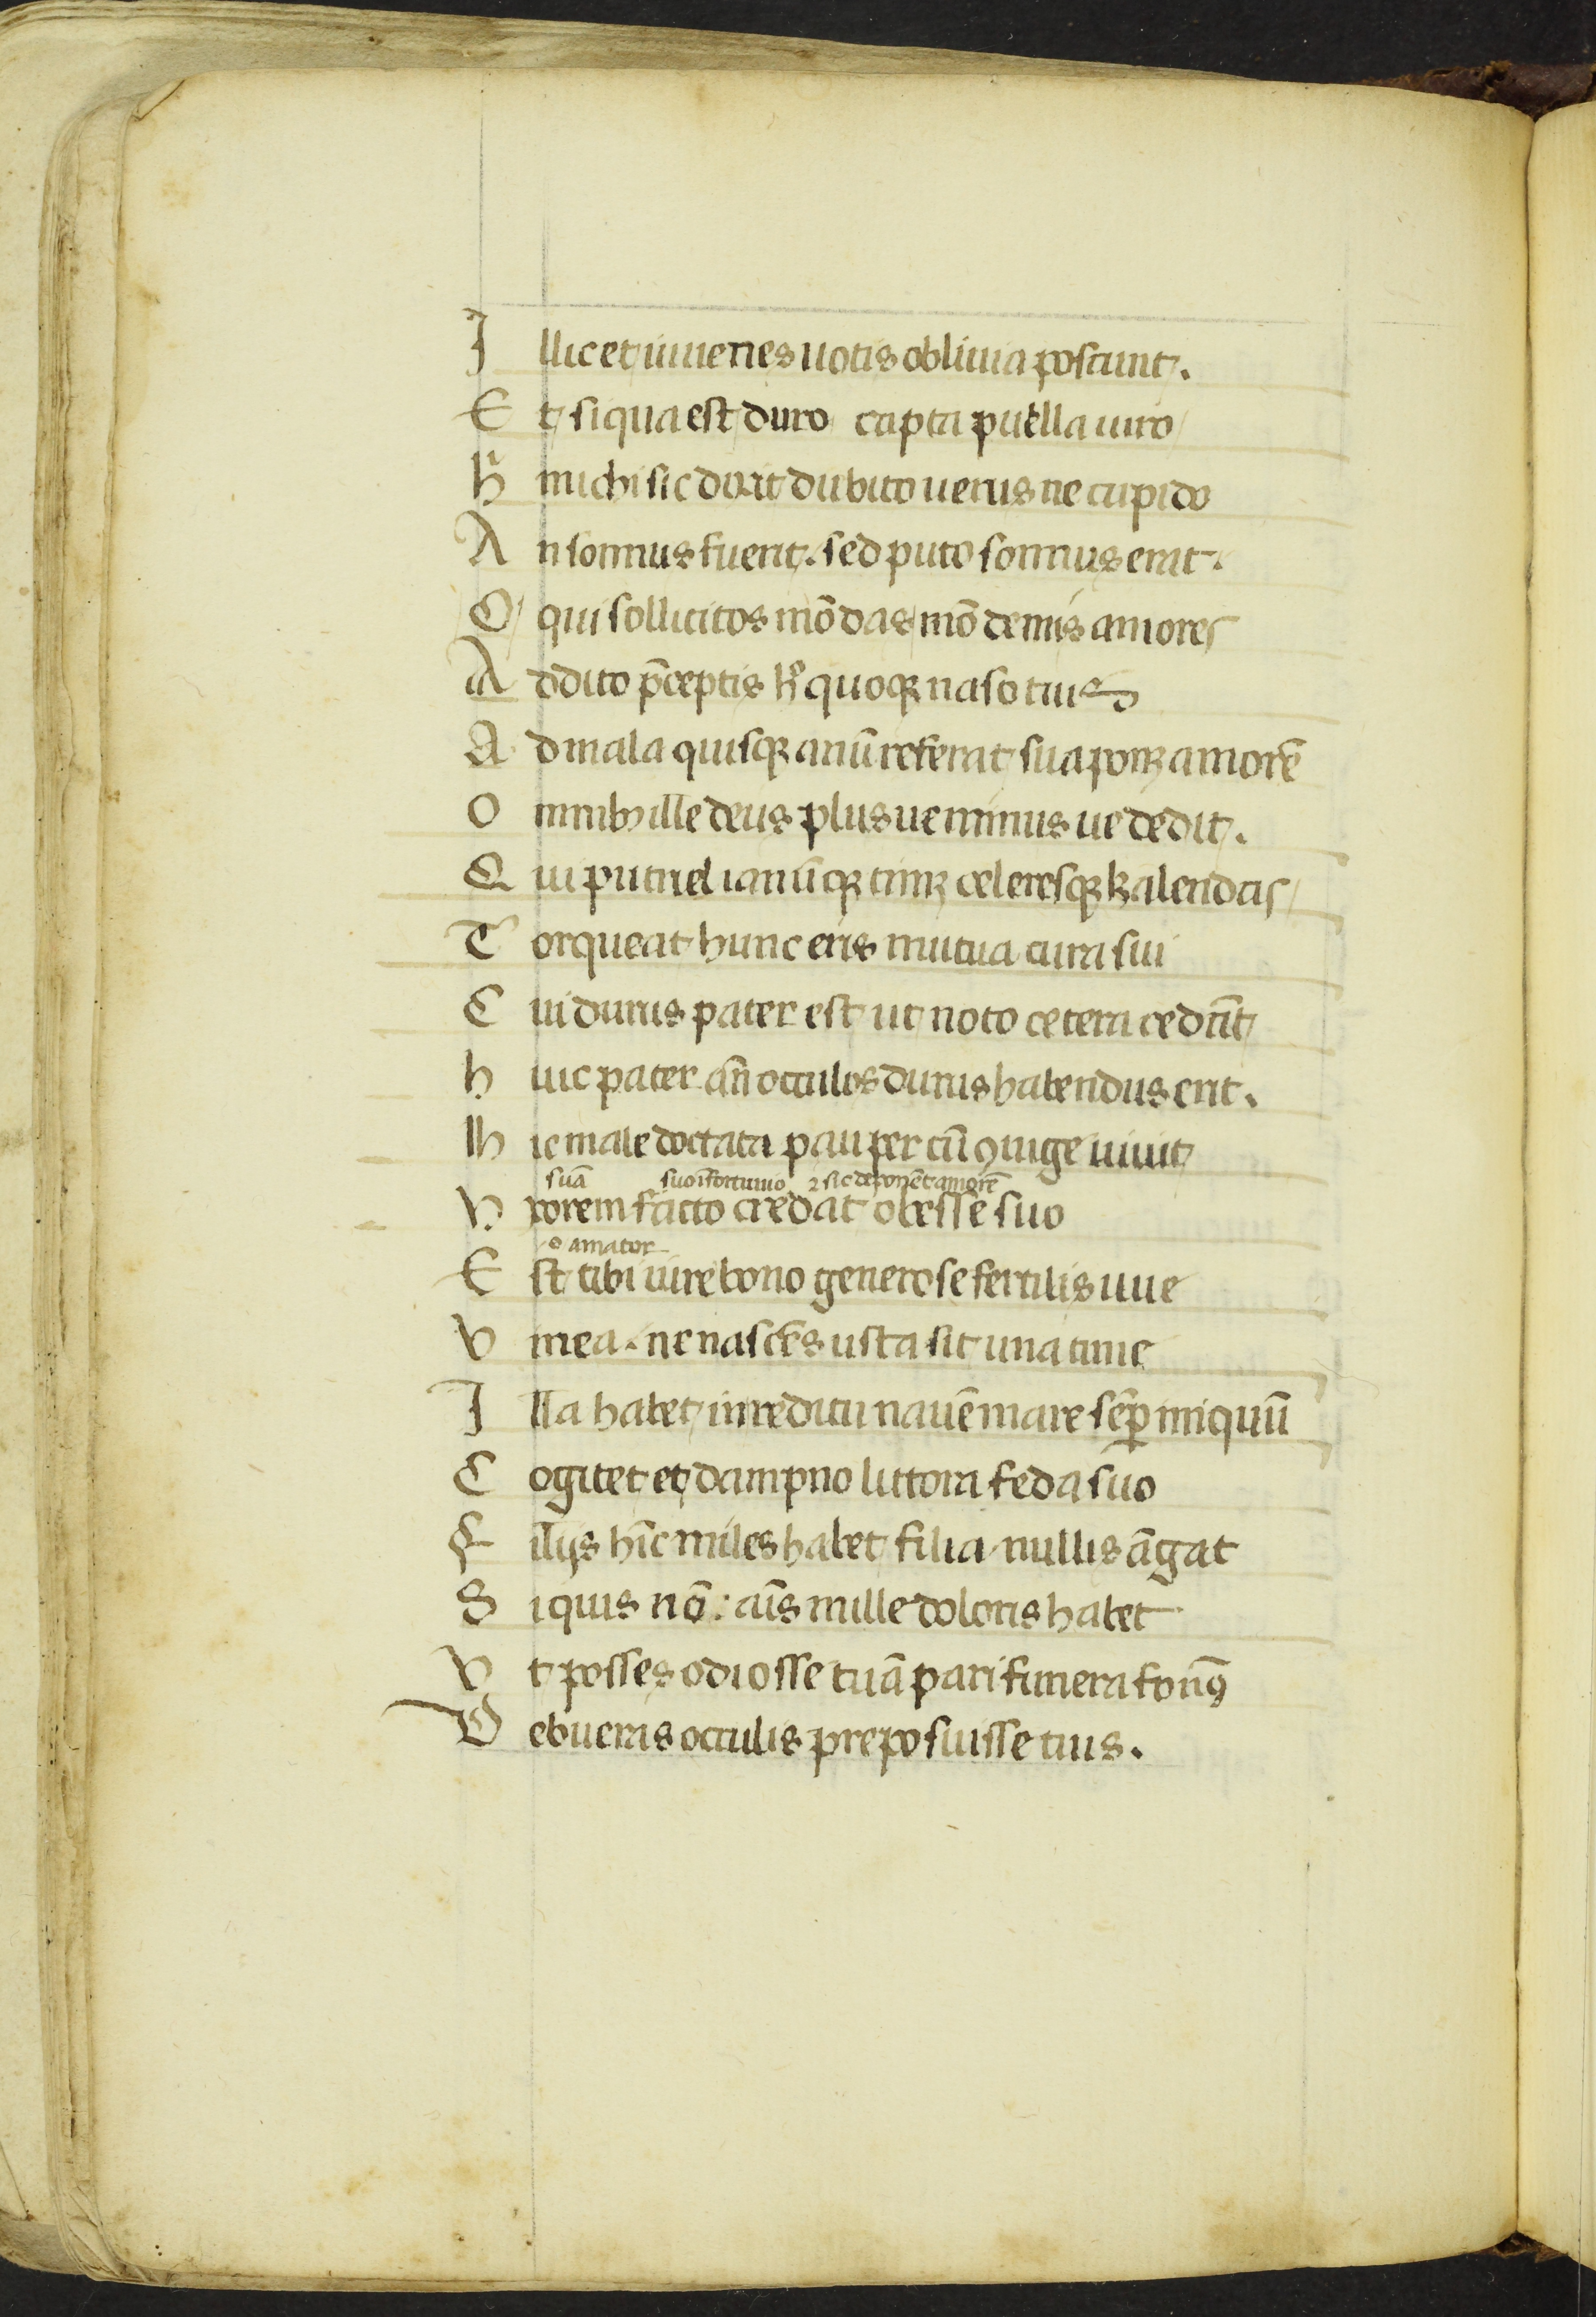 Illic et iuuenes uotis obliuia poscunt.
Et siqua est duro capta puella uiro
H̃ michi sic dixit dubito uerus ne cupido
An somnus fuerit. sed puto somnus erat.
O qui sollicitos mō das mō demis amores
Addito p̄ceptis h̊ quoqꝫ naso tuis
Ad mala quisqꝫ animū referat sua ponꝫ amorē
Omnibꝫ ille deus plus ue minus ue dedit.
Qui puteal ianūqꝫ timꝫ celeresqꝫ kalendas
Torqueat hunc eris mutua cura sui
Cui durus pater est ut uoto cetera cedāt
huic pater an̄ occulos durus habendus erit.
Hic male dotata pauper cū ꝯiuge uiuit
suā suo ĩfortunio ⁊ sic deponēt amorē
Vxorem facto credat obesse suo
o amator
Est tibi iure bono generose fertilis uue
Vinea. ne nascēs usta sit una time
Illa habet in reditu nauē mare sēꝑ iniquū
Cogitet et dampno littora feda suo
Filijs hīc miles habet filia nullis āgat
Siquis nō: cāis mille doloris habet
Vt posses odiosse tuā pari funera fr̄nꝰ
Debueras occulis preposuisse tuis.